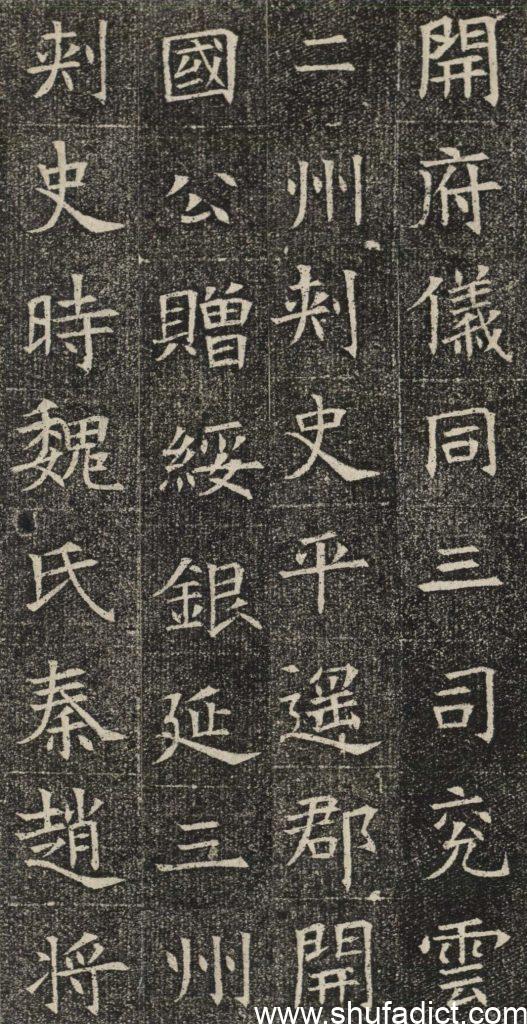 開府儀同三司兖雲
二州刾史平遥郡開
國公贈綏銀延三州
刾史時魏氏秦趙将
www.shufadict.com